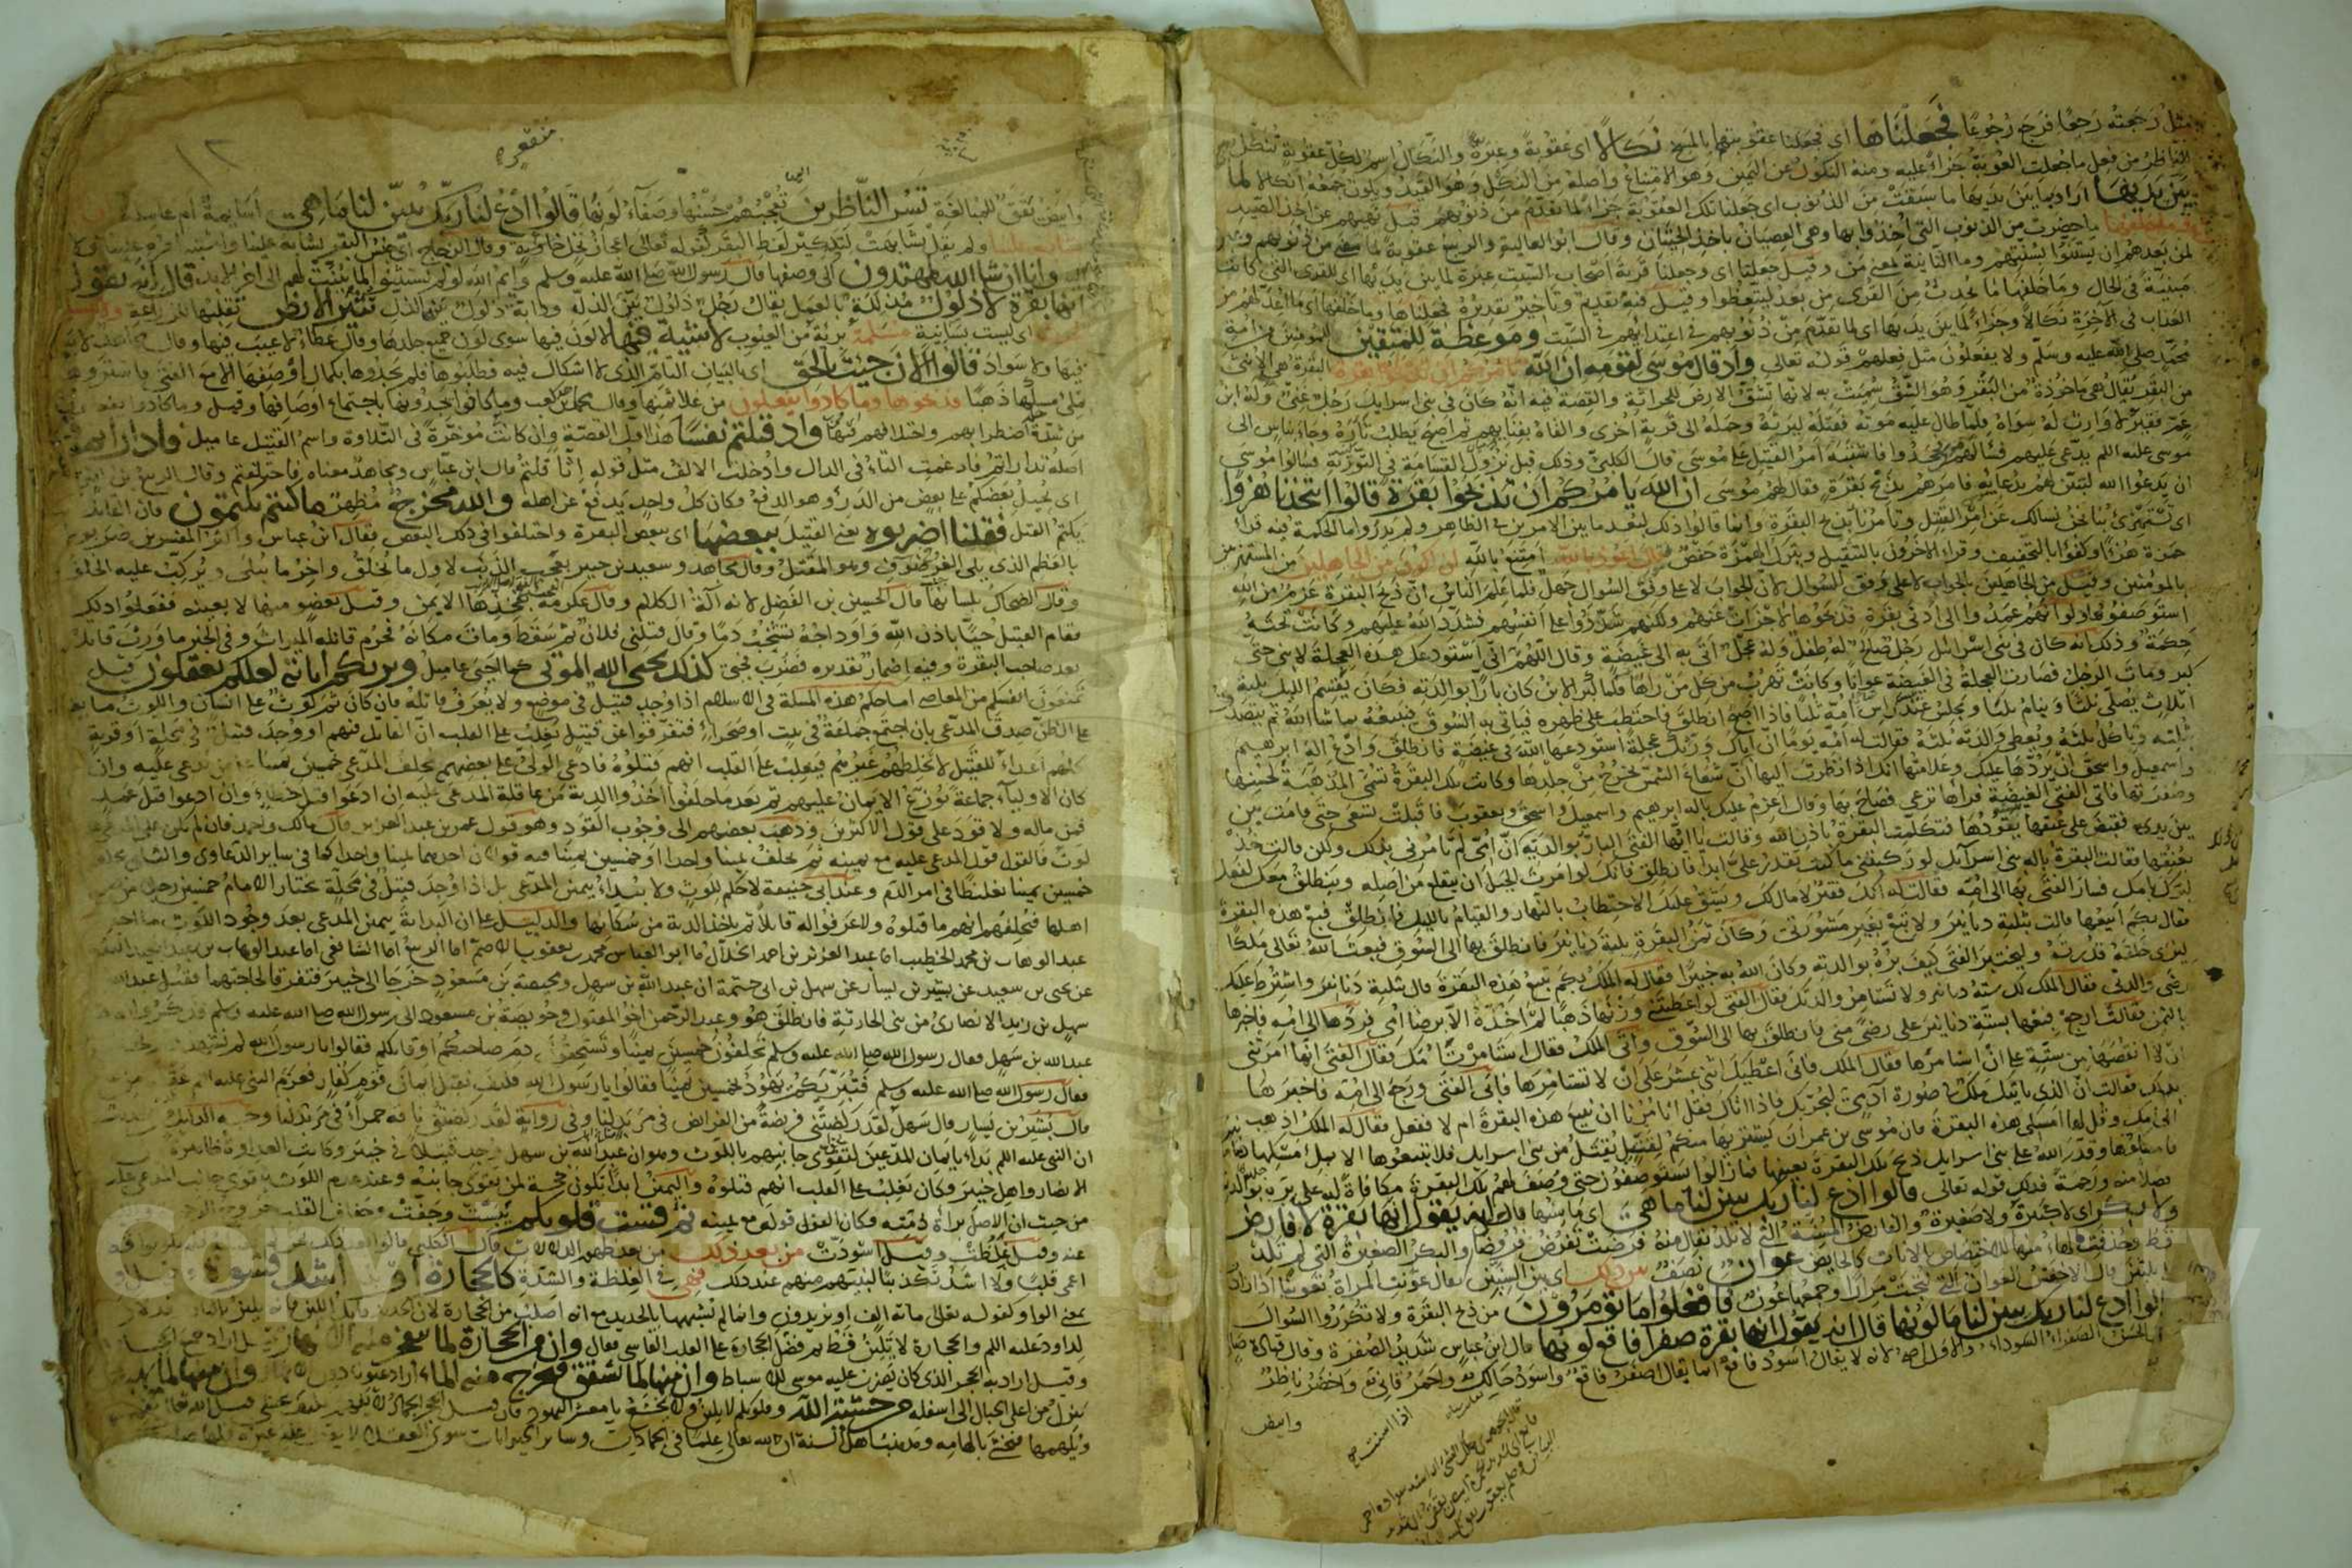 مثل رجعته رجعا فرجع رجوعا فجعلناها اي فجعلنا عقوبتهم بالمسخ نكالا اي عقوبة وعبرة والنكال اسم لكل عقوبة ينكل
الناظر من فعل ما جعلت العقوبة جزاء عليه ومنه النكول عن اليمين وهو الامتناع واصله من النكل وهو القيد ويكون جمعه انكالا لما
بين يديها اراد بما بين يديها ما سبقت من الذنوب اي جعلنا تلك العقوبة جزاء لما تقدم من ذنوبهم قبل نهيهم عن اخذ الصيد
وما خلفها ما حضر من الذنوب التي اخذوا بها وهي العصيان باخذ الحيتان وقال ابو العالية والربيع عقوبة لما مضى من ذنوبهم وعبرة
لمن بعدهم ان يستنوا بسنتهم وما الثانية بمعنى من وقيل جعلنا اي وجعلنا قرية اصحاب السبت عبرة لما بين يديها اي للقرى التي كانت
مبنية في الحال وما خلفها ما يحدث من القرى من بعد ليتعظوا وقيل فيه تقديم وتاخير تقديره فجعلناها وما خلفها اي ما اعد لهم من
العذاب في الآخرة نكالا وجزاء لما بين يديها اي لما تقدم من ذنوبهم في اعتدائهم في السبت وموعظة للمتقين للمؤمنين من امة
محمد صلى الله عليه وسلم ولا يفعلون مثل فعلهم قوله تعالى واذ قال موسى لقومه ان الله يامركم ان تذبحوا بقرة البقرة هي الانثى
من البقر يقال هي ماخوذة من البقر وهو الشق سميت به لانها تشق الارض للحراثة والقصة فيه انه كان في بني اسرايل رجل غني وله ابن
عم فقير لا وارث له سواه فلما طال عليه موته قتله ليرثه وحمله الى قرية اخرى والقاه بفنايهم ثم اصبح يطلب ثاره وجاء بناس الى
موسى عليه السلام يدعي عليهم فسالهم فجحدوا فاشتبه امر القتيل على موسى قال الكلبي وذلك قبل نزول القسامة في التورية فسالوا موسى
ان يدعوا الله ليبين لهم بدعايه فامرهم بذبح بقرة فقال لهم موسى ان الله يامركم ان تذبحوا بقرة قالوا اتتخذنا هزوا
اي تستهزئ بنا نحن نسالك عن امر القتيل وتامرنا بذبح البقرة وانما قالوا ذلك لبعد ما بين الامرين في الظاهر ولم يدروا ما الحكمة فيه قرا
حمزة هزءا وكفؤا بالتخفيف وقراء الآخرون بالتثقيل وبترك الهمزة حفص قال اعوذ بالله امتنع بالله ان اكون من الجاهلين من المستهزئين
بالمؤمنين وقيل من الجاهلين بالجواب لا على وفق السوال لان الجواب لا على وفق السوال جهل فلما علم الناس ان ذبح البقرة عزم من الله
استوصفوها ولو انهم عمدوا الى ادنى بقرة فذبحوها لاجزات عنهم ولكنهم شددوا على انفسهم فشدد الله عليهم وكانت تحته
حكمة وذلك انه كان في بني اسرائل رجل صالح له طفل وله عجل اتى به الى غيضة وقال اللهم اني استودعك هذه العجلة لابني حتى
كبر ومات الرجل فصارت العجلة في الغيضة عوانا وكانت تهرب من كل من راها فلما كبر الابن كان بارا بوالدته فكان يقسم الليل بثلثة
اثلاث يصلي ثلثا وينام ثلثا ويجلس عند راس امه ثلثا فاذا اصبح انطلق فاحتطب على ظهره فياتي به السوق فيبيعه بما شا الله ثم يتصدق
بثلثه وياكل بثلثه ويعطي والدته ثلثه فقالت له امه يوما ان اباك ورثك عجلة استودعها الله في غيضة فانطلق وادع اله ابرهيم
واسمعيل واسحق ان يردها عليك وعلامتها انك اذا نظرت اليها ان شعاع الشمس يخرج من جلدها وكانت تلك البقرة تسمى المذهبة لحسنها
وصفرتها فاتى الفتى الغيضة فراها ترعى فصاح بها وقال اعزم عليك باله ابرهيم واسمعيل واسحق ويعقوب فاقبلت تسعى حتى قامت بين
يديه فقبض على عنقها يقودها فتكلمت البقرة باذن الله وقالت يا ايها الفتى البار بوالديه ان امي لم تامرني بذلك ولكن قالت خذ
بعنقها فقالت البقرة باله بني اسرآيل لو ركبتني ما كنت تقدر علي ابدا فانطلق فانك لو امرت الجبل ان ينقلع من اصله وينطلق معك لفعل
لبرك بامك فسار الفتى بها الى امه فقالت له انك فقير لا مال لك ويشق عليك الاحتطاب بالنهار والقيام بالليل فانطلق فبع هذه البقرة
فقال بكم ابيعها قالت بثلثة دنانير ولا تبع بغير مشورتي وكان ثمن البقرة ثلثة دنانير فانطلق بها الى السوق فبعث الله تعالى ملكا
ليرى خلقه قدرته وليختبر الفتى كيف بره بوالدته وكان الله به خبيرا فقال له الملك بكم تبيع هذه البقرة قال بثلثة دنانير واشترط عليك
رضى والدتي فقال الملك لك ستة دنانير ولا تستامر والدتك فقال الفتى لو اعطيتني وزنها ذهبا لم اخذه الا برضا امي فردها الى امه فاخبرها
بالثمن فقالت ارجع فبعها بستة دنانير على رضى مني فانطلق بها الى السوق واتى الملك فقال استامرت امك فقال الفتى انها امرتني
ان لا انقصها من ستة على ان استامرها فقال الملك فاني اعطيك اثني عشر على ان لا تستامرها فابى الفتى ورجع الى امه فاخبرها
بذلك فقالت ان الذي ياتيك ملك في صورة آدمي ليختبرك فاذا اتاك فقل له اتامرنا ان نبيع هذه البقرة ام لا ففعل فقال له الملك اذهب
الى امك وقل لها امسكي هذه البقرة فان موسى بن عمران يشتريها منكم لقتيل يقتل من بني اسرايل فلا تبيعوها الا بملء مسكها دنانير
فامسكوها وقدر الله على بني اسرايل ذبح تلك البقرة بعينها فما زالوا يستوصفون حتى وصف لهم تلك البقرة مكافاة له على بره بوالدته
فضلا منه ورحمة فذلك قوله تعالى قالوا ادع لنا ربك يبين لنا ما هي اي ما سنها قال انه يقول انها بقرة لا فارض
ولا بكر اي لا كبيرة ولا صغيرة والفارض المسنة التي لا تلد يقال منه فرضت تفرض فروضا والبكر الصغيرة التي لم تلد
قط وحذفت الهاء منها للاختصاص بالاناث كالحايض عوان نصف بين ذلك اي بين السنين يقال عونت المراة تعوينا اذا زادت
قال الاخفش العوان التي نتجت مرارا وجمعها عون فافعلوا ما تؤمرون من ذبح البقرة ولا تكرروا السوال
قالوا ادع لنا ربك يبين لنا ما لونها قال انه يقول انها بقرة صفرا فاقع لونها قال ابن عباس شديد الصفرة وقال قتادة صاف
الحسن الصفراء السوداء والاول اصح لانه لا يقال اسود فاقع انما يقال اصفر فاقع واسود حالك واحمر قاني واخضر ناظر
وابيض
١٢
وابيض يقق للمبالغة تسر الناظرين تعجبهم حسنها وصفاء لونها قالوا ادع لنا ربك يبين لنا ما هي اسائمة ام عاملة
ولم يقل تشابهت لتذكير لفظ البقر كقوله تعالى اعجاز نخل خاوية وقال الزجاج اي جنس البقر تشابه علينا
وانا ان شا الله لمهتدون الى وصفها قال رسول الله صلى الله عليه وسلم وايم الله لو لم يستثنوا لما بينت لهم الى اخر الابد قال انه يقول
انها بقرة لا ذلول مذللة بالعمل يقال رجل ذلول بين الذلة ودابة ذلول بين الذل تثير الارض تقلبها للزراعة
اي ليست بسانية مسلمة بريئة من العيوب لا شية فيها لا لون فيها سوى لون جميع جلدها وقال عطاء لا عيب فيها وقال مجاهد لا بياض
فيها ولا سواد قالوا الآن جيت بالحق اي بالبيان التام الذي لا اشكال فيه فطلبوها فلم يجدوها بكمال وصفها الا مع الفتى
ملئ مسكها ذهبا فذبحوها وما كادوا يفعلون من غلا ثمنها وقال محمد بن كعب وما كانوا يجدونها باجتماع اوصافها وقيل وما كادوا
من شدة اضطرابهم واختلافهم فيها واذ قتلتم نفسا هذا اول القصة وان كانت مؤخرة في التلاوة واسم القتيل عاميل فادارأتم
اصله تداراتم فادغمت التاء في الدال وادخلت الالف مثل قوله اثاقلتم قال ابن عباس ومجاهد معناه فاختلفتم وقال الربيع بن انس
اي يحيل بعضكم على بعض من الدرء وهو الدفع وكان كل واحد يدفع عن اهله والله مخرج مظهر ما كنتم تكتمون فان القاتل
يكتم القتل فقلنا اضربوه يعني القتيل ببعضها اي ببعض البقرة واختلفوا في ذلك البعض فقال ابن عباس واكثر المفسرين ضربوه
بالعظم الذي يلي الغضروف وهو المقتل وقال مجاهد وسعيد بن جبير بعجب الذنب لاول ما يخلق واخر ما يبلى ويركب عليه الخلق
وقال الضحاك بلسانها قال الحسين بن الفضل لانه آلة الكلام وقال عكرمة بفخذها الايمن وقيل بعضو منها لا بعينه ففعلوا ذلك
فقام القتيل حيا باذن الله واوداجه تشخب دما وقال قتلني فلان ثم سقط ومات مكانه فحرم قاتله الميراث وفي الخبر ما ورث قاتل
بعد صاحب البقرة وفيه اضمار تقديره فضرب فحيي كذلك يحيي الله الموتى كما احيى عاميل ويريكم اياته لعلكم تعقلون قيل
تمنعون انفسكم من المعاصي اما حكم هذه المسلة في الاسلام اذا وجد قتيل في موضع ولا يعرف قاتله فان كان ثم لوث على انسان واللوث ما يغلب
على الظن صدق المدعي بان اجتمع جماعة في بيت او صحراء فتفرقوا عن قتيل يغلب على القلب ان القاتل فيهم او وجد قتيل في محلة او قرية
كلهم اعداء للقتيل لا يخلطهم غيرهم فيغلب على القلب انهم قتلوه فادعى الولي على بعضهم يحلف المدعي خمسين يمينا على من يدعي عليه وان
كان الاولياء جماعة توزع الايمان عليهم ثم بعد ما حلفوا اخذوا الدية من عاقلة المدعى عليه ان ادعوا قتل خطاء وان ادعوا قتل عمد
فمن ماله ولا قود على قول الاكثرين وذهب بعضهم الى وجوب القود وهو قول عمر بن عبد العزيز وقال مالك واحمد فان لم يكن على المدعى عليه
لوث فالقول قول المدعى عليه مع يمينه ثم يحلف يمينا واحدا او خمسين يمينا فيه قولان احدهما يمينا واحدا كما في ساير الدعاوى والثاني يحلف
خمسين يمينا تغليظا في امر الدم وعند ابي حنيفة لا حكم للوث ولا يبداء بيمين المدعي بل اذا وجد قتيل في محلة يختار الامام خمسين رجلا
اهلها فيحلفهم انهم ما قتلوه ولا عرفوا له قاتلا ثم ياخذ الدية من سكانها والدليل على ان البداية بيمين المدعي بعد وجود اللوث ما اخبرنا
عبد الوهاب بن محمد الخطيب انا عبد العزيز بن احمد الخلال انا ابو العباس محمد بن يعقوب الاصم انا الربيع انا الشافعي انا عبد الوهاب بن عبد المجيد الثقفي
عن يحيى بن سعيد عن بشير بن يسار عن سهل بن ابي حثمة ان عبد الله بن سهل ومحيصة بن مسعود خرجا الى خيبر فتفرقا لحاجتهما فقتل عبد الله
سهل بن زيد الانصاري من بني الحارثية فانطلق هو وعبد الرحمن اخو المقتول وحويصة بن مسعود الى رسول الله صلى الله عليه وسلم
عبد الله بن سهل فقال رسول الله صلى الله عليه وسلم تحلفون خمسين يمينا وتستحقون دم صاحبكم او قاتلكم فقالوا يا رسول الله لم نشهد
فقال رسول الله صلى الله عليه وسلم فتبريكم يهود بخمسين يمينا فقالوا يا رسول الله فكيف نقبل ايمان قوم كفار فعزم النبي عليه السلام
قال بشير بن يسار قال سهل لقد ركضتني فريضة من الفرائض في مربد لنا وفي رواية لقد ركضتني ناقة حمراء في مربد لنا
ان النبي عليه السلم بداء بايمان المدعين لتقوى جانبهم باللوث وهو ان عبد الله بن سهل وجد قتيلا في خيبر وكانت العداوة ظاهرة
الانصار واهل خيبر وكان يغلب على القلب انهم قتلوه واليمين ابدا تكون حجة لمن يقوى جانبه وعند عدم اللوث يقوى جانب المدعى عليه
من حيث ان الاصل براءة ذمته فكان القول قوله مع يمينه ثم قست قلوبكم يبست وجفت وجفاف القلب
وقيل غلظت وقيل اسودت من بعد ذلك من بعد ظهور الدلالات قال الكلبي
اعمى قلبا ولا اشد تكذيبا لنبيهم منهم عند ذلك فهي في الغلظة والشدة كالحجارة او اشد قسوة
بمعنى الواو كقوله تعالى مائة الف او يزيدون وانما لم يشبهها بالحديد مع انه اصلب من الحجارة لان الحديد
لداود عليه السلم والحجارة لا تلين قط ثم فضل الحجارة على القلب القاسي فقال وان من الحجارة لما يتفجر منه الانهار
وقيل اراد به الحجر الذي كان يضرب عليه موسى للاسباط وان منها لما يشقق فيخرج منه الماء اراد عيونا دون الانهار وان منها لما يهبط
ينزل من اعلى الجبال الى اسفله من خشية الله وقلوبكم لا تلين ولا تخشع يا معشر اليهود فان قيل الحجر جماد لا يفهم
ويلهمها فتخشى بالهامه ومذهب اهل السنة ان لله تعالى علما في الجمادات وسائر الحيوانات سوى العقلاء لا يقف عليه غيره